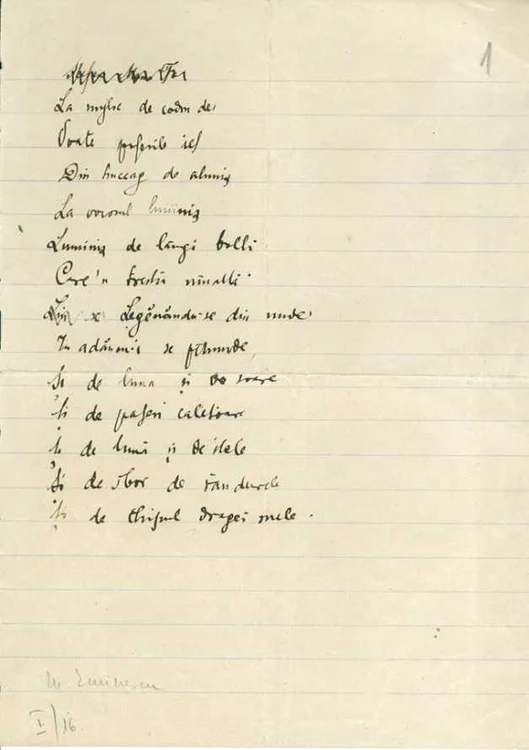 1
La mijloc de codru des
Toate paserile ies
Din huceag de aluniș
La voiosul luminiș
Luminiș de langă baltă
Care'n trestia naltă
Legănându-se din unde
In adâncu-i se pătrunde
Și de luna și de soare
Și de paseri calatoare
Și de lună și de stele
Și de sbor de rândurele
Și de chipul dragei mele.
M. Eminescu
I/16